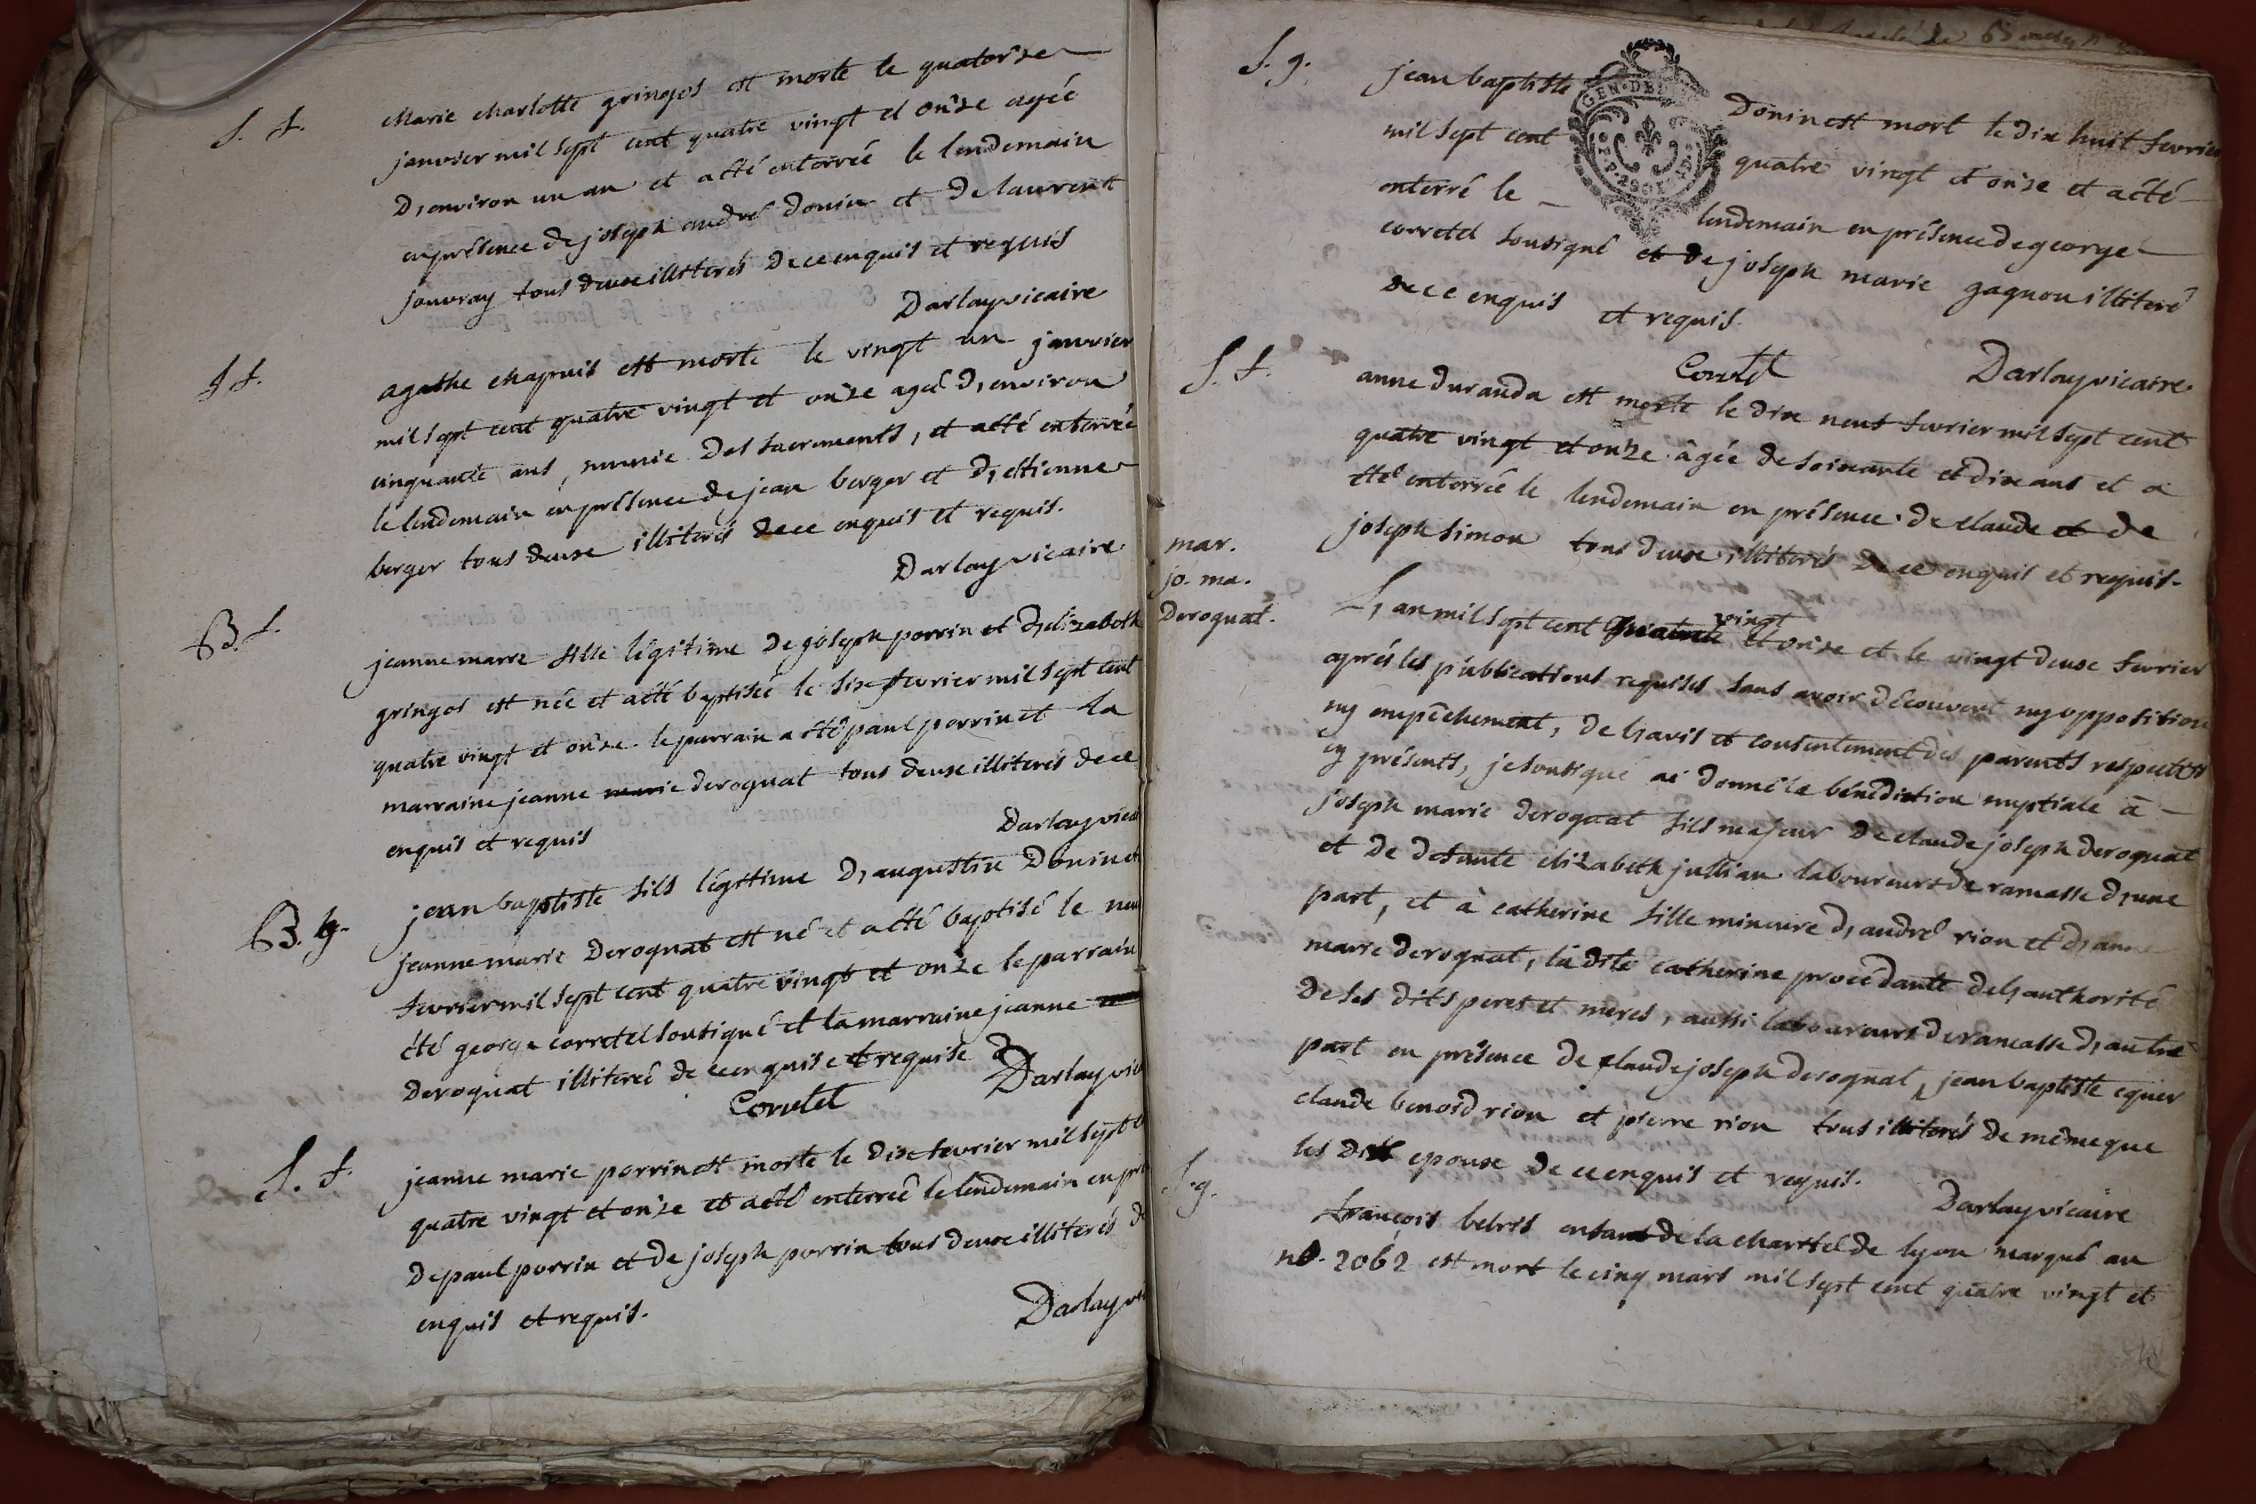 S. f.
Marie charlotte gringos est morte le quatorze
janvier mil sept cent quatre vingt et onze agée
D, environ un an et a été enterrée le lendemain
en présence de joseph andré donin et de laurent
jouvray tous deux illiterés de ce enquis et requis
Darlay vicaire
S f.
agathe chapuis est morte le vingt un janvier
mil sept cent quatre vingt et onze agée D, environ
cinquante ans, munie des sacrements, et a été enterrée
le lendemain en présence de jean berger et D, ettienne
berger tous deux illiterés de ce enquis et requis.
Darlay vicaire
B. f.
jeanne marie fille légitime de joseph perrin et D, elizabeth
gringos est née et a été baptisée le six fevrier mil sept cent
quatre vingt et onze. le parrain a été paul perrin et la
marraine jeanne marie deroguat tous deux illiterés de ce
enquis et requis
Darlay vicai
B. g.
jean baptiste fils légitime D, augustin Donin et
jeanne marie Deroguat est né et a été baptisé le neu
fevrier mil sept cent quatre vingt et onze le parrain
été george corretel soutigné et la marraine jeanne
Deroguat illiterée de ce enquise et requise
Corretel
Darlay vic
S. f.
jeanne marie perrin est morte le dix fevrier mil sept c
quatre vingt et onze et a été enterrée le lendemain en pré
de paul perrin et de joseph perrin tous deux illiterés d
enquis et requis.
Darlay vi
S. g.
jean baptiste Donin est mort le dix huit fevrier
mil sept cent quatre vingt et onze et a été
enterré le lendemain en présence de george
corretel soutigné et de joseph marie gagnon illiteré
de ce enquis et requis.
Corretel
Darlay vicaire.
S. f.
anne duranda est morte le dix neuf fevrier mil sept cent
quatre vingt et onze âgée de soixante et dix ans et a
été enterrée le lendemain en présence de claude et de
joseph simon tous deux illiterés de ce enquis et requis.
mar.
jo. ma.
Deroguat.
L, an mil sept cent quatre vingt et onze et le vingt deux fevrier
aprés les publications requises sans avoir découvert ny opposition
ny empêchement, de l, avis et consentement des parents respectifs
cy présents, je soutigné ai donné la bénédiction nuptiale à
joseph marie deroguat fils majeur de claude joseph deroguat
et de defunte elizabeth jullian laboureurs de ramasse d, une
part, et à catherine fille mineure d, andré rion et d, anne
marie deroguat, la dite catherine procédante de l, authorité
de ses dits peres et mères, aussi laboureurs de ramasse d, autre
part en présence de claude joseph deroguat, jean baptiste equier
claude benoid rion et pierre rion tous illiterés de même que
les dits epoux de ce enquis et requis.
Darlay vicaire
S. g.
françois belris enfant de la charité de lyon marqué au
no. 2062 est mort le cinq mars mil sept cent quatre vingt et